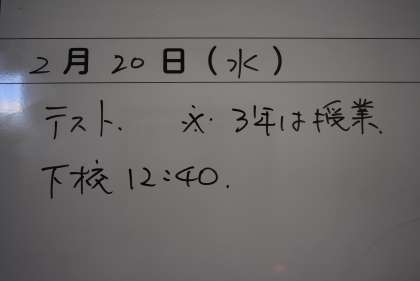 2月20日(水)
テスト. ※・3年は授業.
下校 12:40.